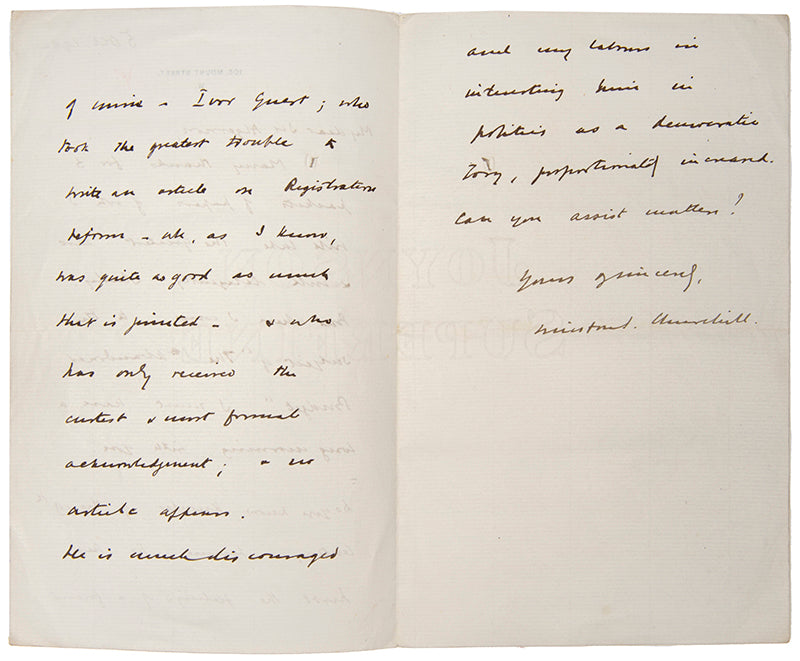 of mine – Ivor Guest; who
took the greatest trouble to
write an article on Registration
Reform – wh, as I know,
was quite as good as much
that is printed – & who
has only received the
curtest & most formal
acknowledgment; & no
article appears.
He is much discouraged
and my labours in
interesting him in
politics as a democratic
Tory, proportionately increased.
Can you assist matters?
Yours sincerely,
Winston S. Churchill.